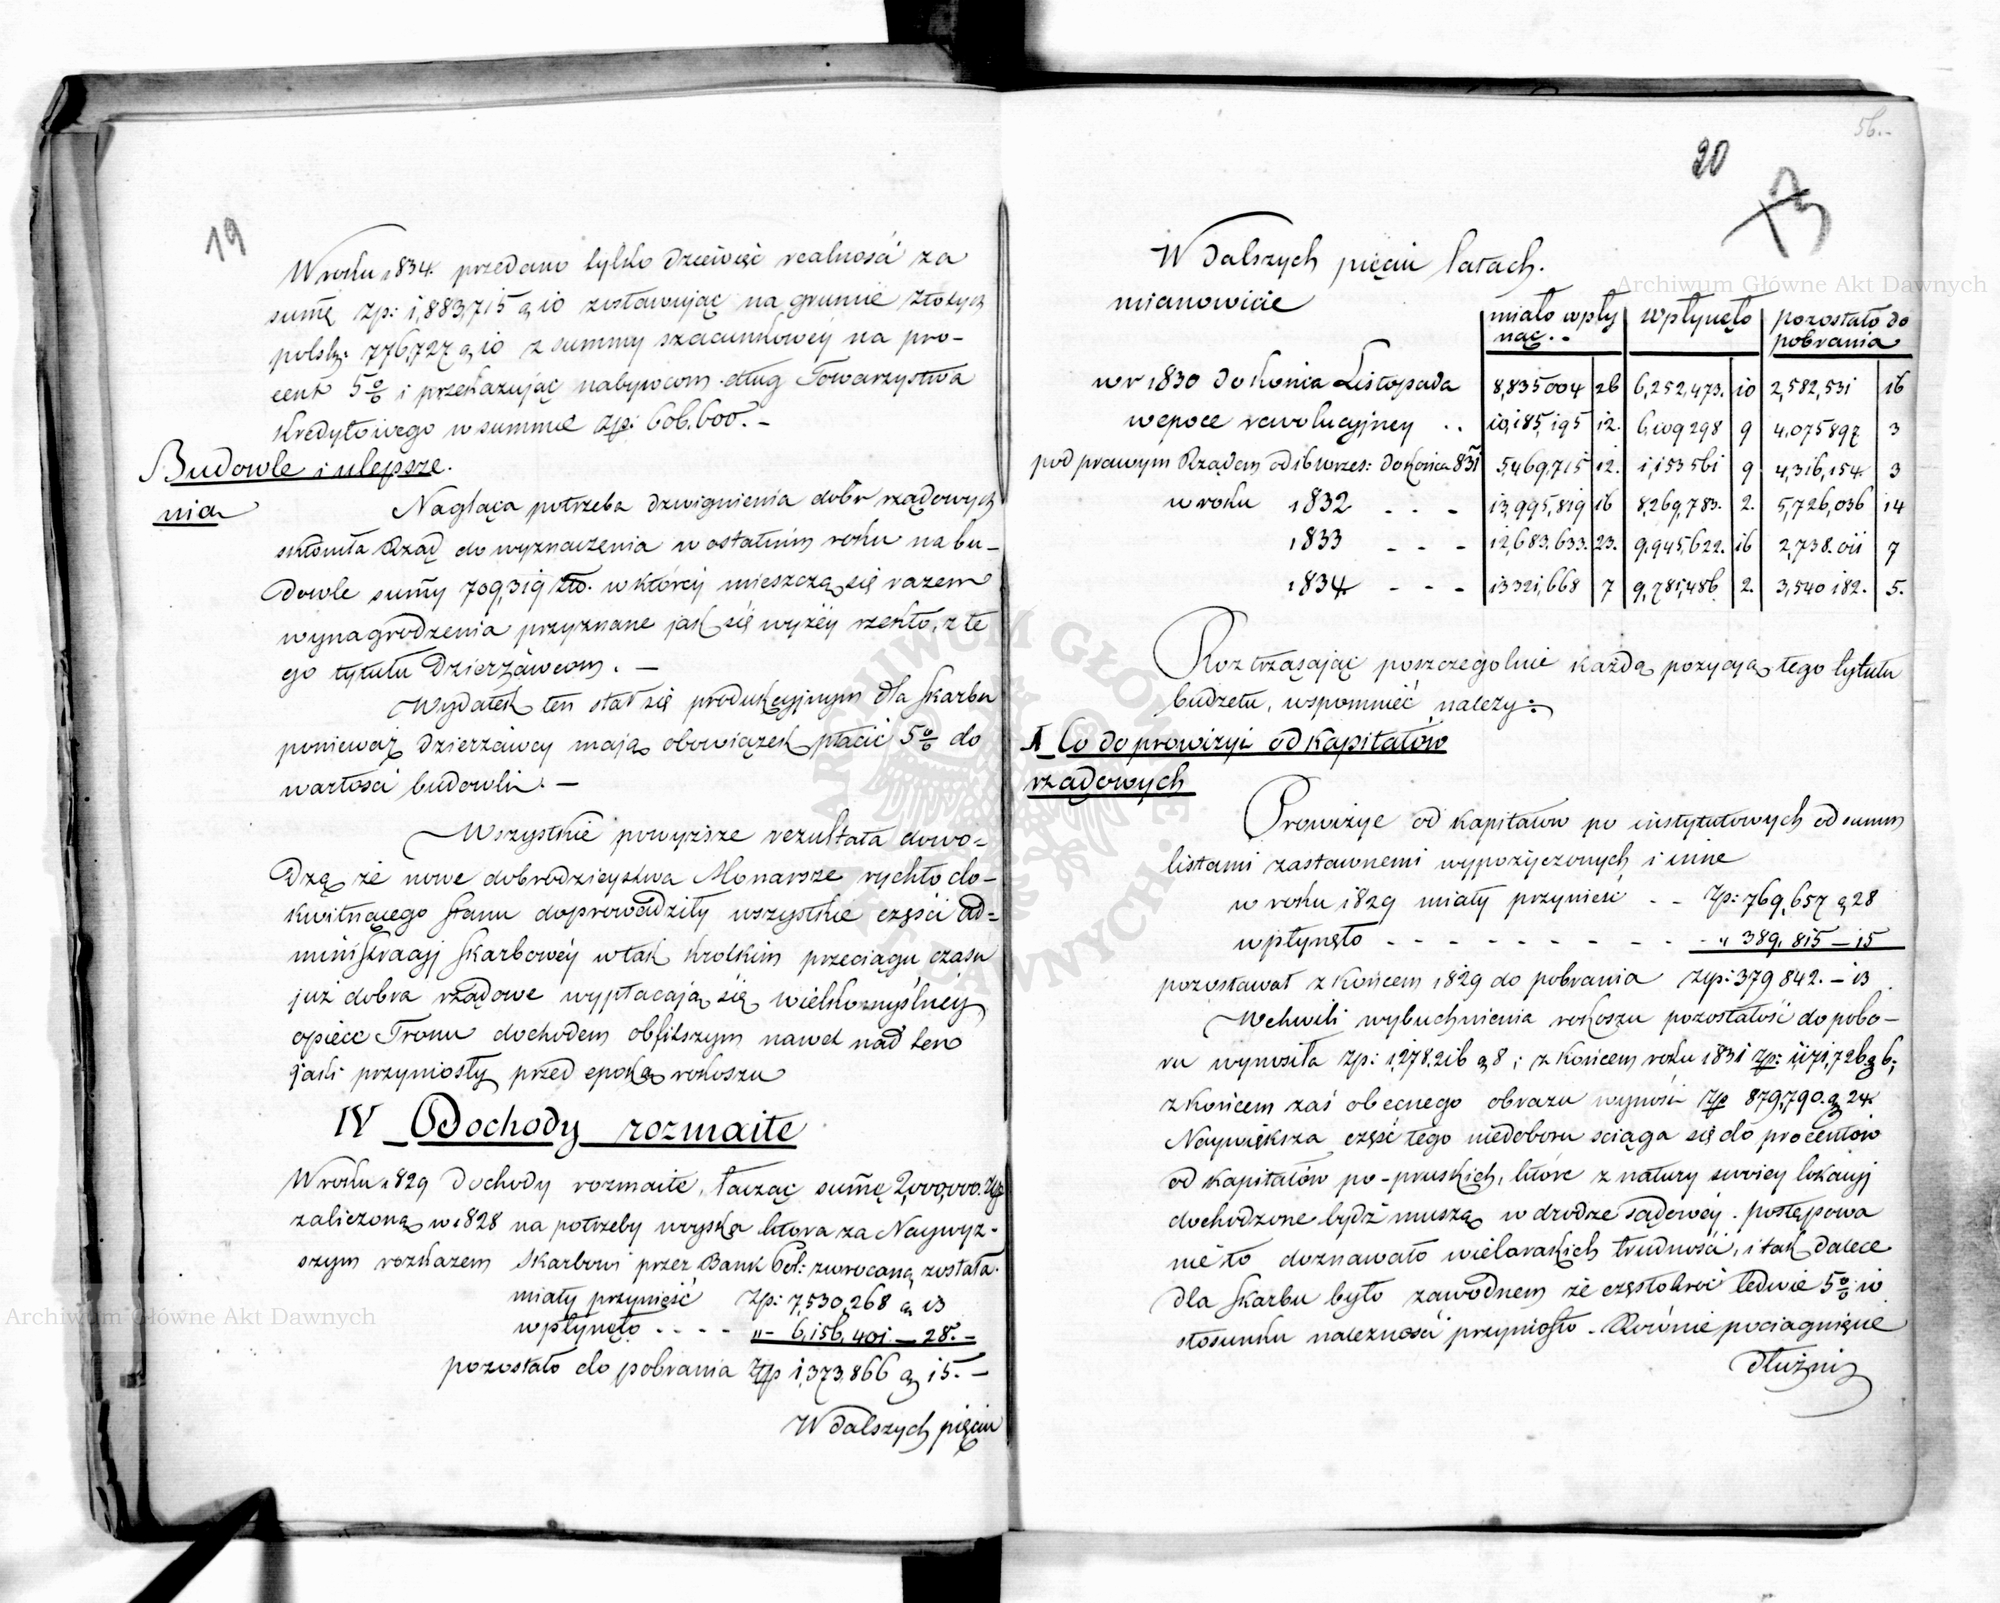 19
W roku 1834. przedano tylko dziewięć realności za
sumę Zp: 1,883,715 g 10 zostawując na gruncie złotych
polsk: 776,727 g 10 z summy szacunkowéy na pro-
cent 5% i przekazując nabywcom dług Towarzystwa
Kredytowego w summie Zp: 606,600. -
Budowle i ulepsze.
nia
Nagląca potrzeba dzwignienia dobr rządowych
skłoniła Rząd do wyznaczenia w ostatnim roku na bu-
dowle sumy 709,319 Zło. w któréy mieszczą się razem
wynagrodzenia przyznane jak się wyżéy rzekło, z te
go tytułu Dzierżawcom. -
Wydatek ten stał się produkcyjnym dla Skarbu
ponieważ dzierżawcy mają obowiązek płacić 5% do
wartości budowli. -
Wszystkie powyższe rezultata dowo-
dzą że nowe dobrodzieystwa Monarsze rychło do-
kwitnącego stanu doprowadziły wszystkie części ad-
ministracyj Skarbowéy w tak krotkim przeciągu czasu
już dobra rządowe wypłacają się wielkomyślnéy
opiece Tronu dochodem obfitszym nawet nad ten
jaki przyniosły przed epoką rokoszu
IV Dochody rozmaite
W roku 1829 dochody rozmaite, łącząc sumę 2,000,000. Zp
zaliczoną w 1828 na potrzeby woyska ktora za Naywyż-
szym rozkazem Skarbowi przez Bank Pol: zwroconą została.
miały przynieść Zp: 7,530,268 g 13
wpłynęło . - - - „ - 6,156,401 - 28. -
pozostało do pobrania Zp 1,373,866 g 15. -
W dalszych pięciu
56.-
20
W dalszych pięciu latach.
mianowicie
miało wpły | wpłynęło | pozostało do
nąć. - | pobrania
w r 1830 do końca Listopada 8,835004 26 6,252,473. 10 2,582,531 16
w epoce rewolucyjney . . 10,185,195 12. 6,109298 9 4,075897 3
pod prawym Rządem od 16 wrzes: do końca 831 5,469,715 12. 1,153561 9 4,316,154 3
w roku 1832 - - - 13,995,819 16 8,269,783. 2. 5,726,036 14
1833 - - - 12,683,633. 23. 9,945,622. 16 2,738.011 7
1834 - - - 13321,668 7 9,781,486 2. 3,540182. 5.
Roztrząsając poszczegolnie każdą pozycyą tego tytułu
budżetu, wspomnieć należy:
I Co do prowizyi od kapitałów
rządowych
Prowizye od kapitałów po instytutowych od summ
listami zastawnemi wypożyczonych i inne
w roku 1829 miały przynieść - - Zp: 769,657 g 28
wpłynęło - - - - - - - - - „ 389,815 - 15
pozostawał z końcem 1829 do pobrania Zp: 379 842. - 13
W chwili wybuchnienia rokoszu pozostałość do pobo-
ru wynosiła Zp: 1,278,216 g 8; z końcem roku 1831 Zp: 1,171,726 g 6;
z końcem zaś obecnego obrazu wynosi Zp 879,790. g 24
Naywiększa część tego niedoboru ściąga się do procentow
od kapitałów po-pruskich, które z natury swoiey lokacyj
dochodzone bydź muszą w drodze sądowéy. postępowa
nie to doznawało wielorakich trudności, i tak dalece
dla Skarbu było zawodnem że częstokroć ledwie 5% w
stosunku należności przyniosło. Rownie pociągnięcie
dłużni